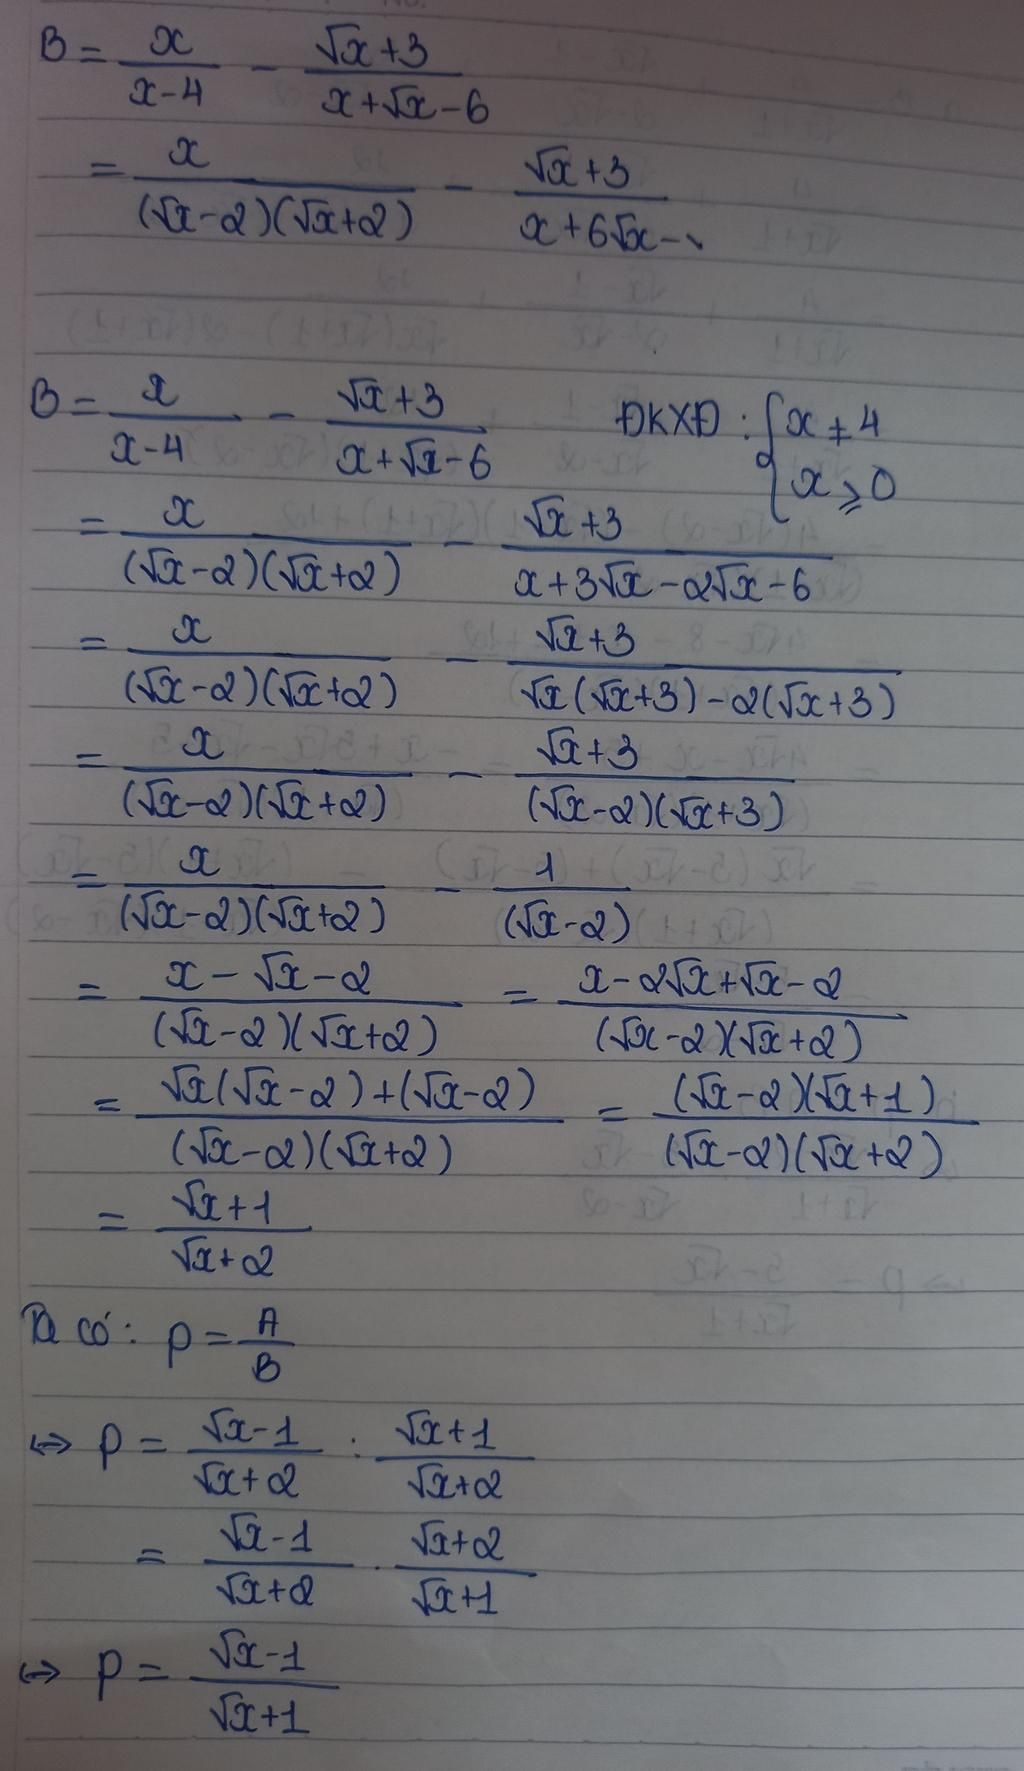 B = x/(x-4) - (√x+3)/(x+√x-6)
= x/((√x-2)(√x+2)) - (√x+3)/(x+6√x-
B = x/(x-4) - (√x+3)/(x+√x-6) ĐKXĐ: { x ≠ 4
x ⩾ 0
= x/((√x-2)(√x+2)) - (√x+3)/(x+3√x-2√x-6)
= x/((√x-2)(√x+2)) - (√x+3)/(√x(√x+3)-2(√x+3))
= x/((√x-2)(√x+2)) - (√x+3)/((√x-2)(√x+3))
= x/((√x-2)(√x+2)) - 1/(√x-2)
= (x-√x-2)/((√x-2)(√x+2)) = (x-2√x+√x-2)/((√x-2)(√x+2))
= (√x(√x-2)+(√x-2))/((√x-2)(√x+2)) = ((√x-2)(√x+1))/((√x-2)(√x+2))
= (√x+1)/(√x+2)
Ta có: P = A/B
↔ P = (√x-1)/(√x+2) : (√x+1)/(√x+2)
= (√x-1)/(√x+2) . (√x+2)/(√x+1)
↔ P = (√x-1)/(√x+1)